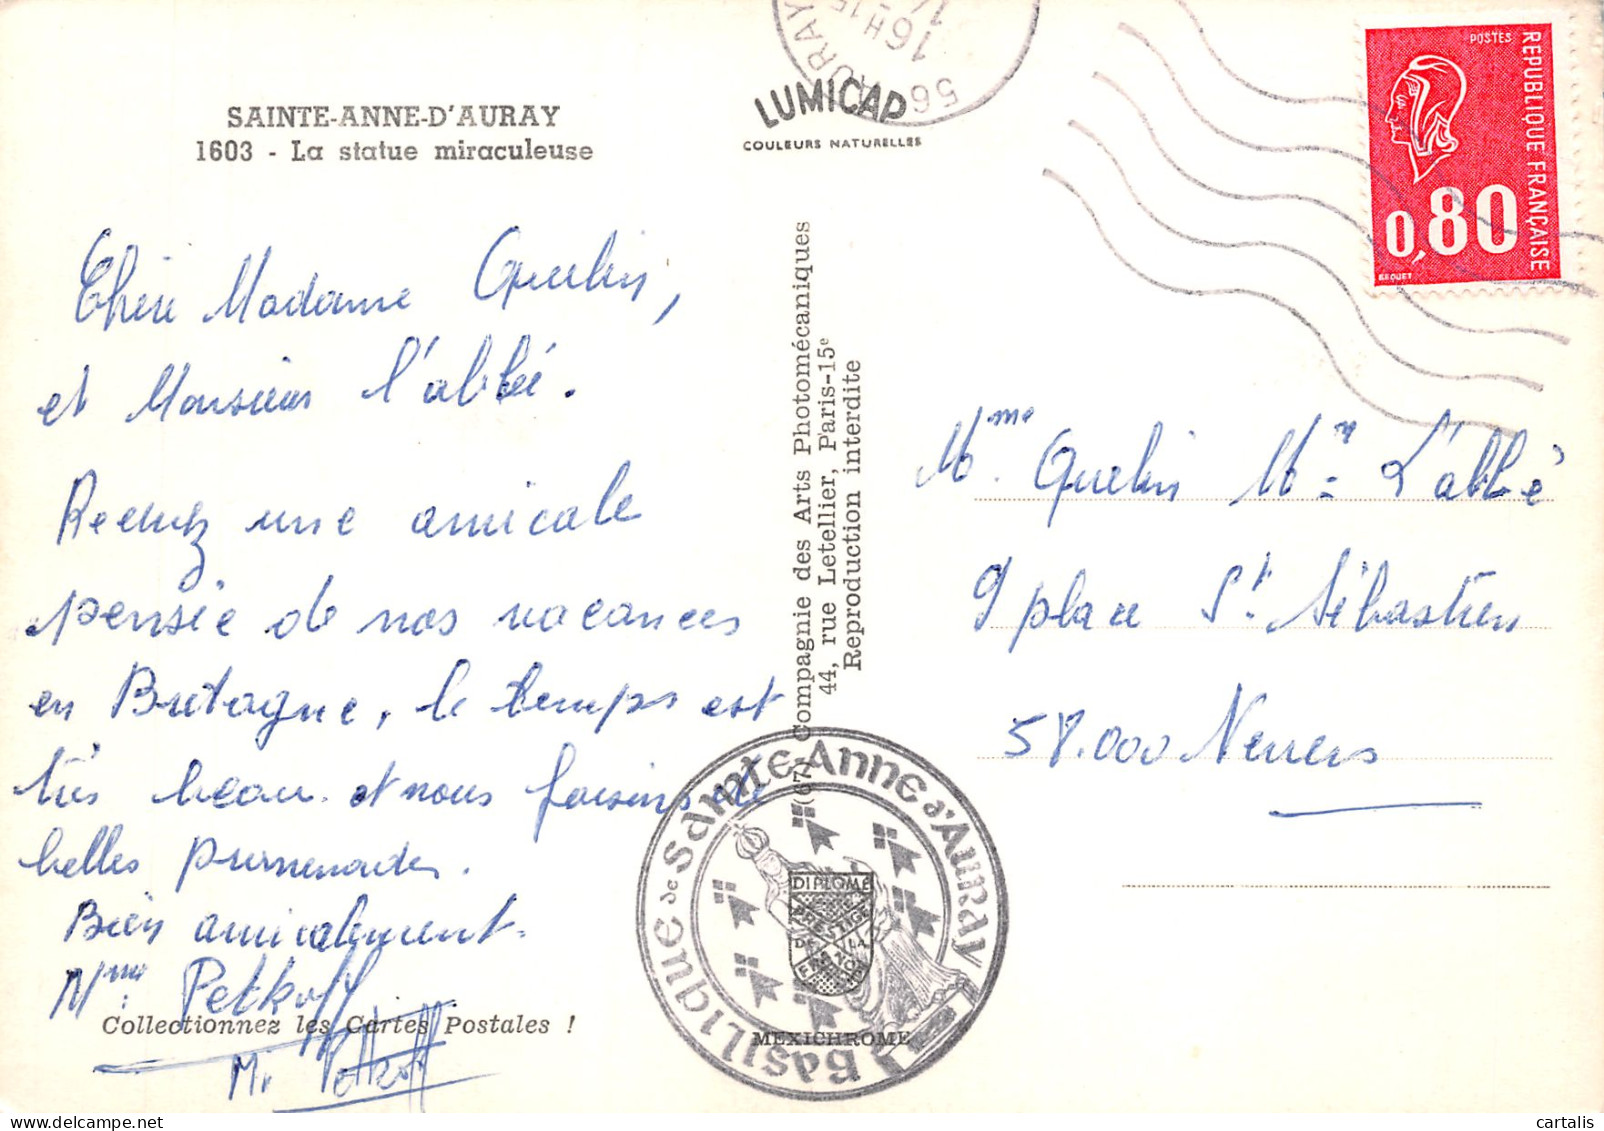 SAINTE-ANNE-D'AURAY
1603 - La statue miraculeuse
LUMICAP
COULEURS NATURELLES
56 AURAY
16H15
POSTES
REPUBLIQUE FRANÇAISE
0,80
BEQUET
Chère Madame Quelin,
et Monsieur l'abbé.
Recevez une amicale
pensée de nos vacances
en Bretagne, le temps est
très beau et nous faisons de
belles promenades.
Bien amicalement.
Mme Petkoff
Mr Petkoff
Collectionnez les Cartes Postales !
(67) Compagnie des Arts Photomécaniques
44, rue Letellier, Paris-15e
Reproduction interdite
Mme Quelin Mr L'abbé
9 place St Sébastien
58.000 Nevers
BASILIQUE de SAINTE-ANNE d'AURAY
DIPLOME
PRESTIGE
DE LA
MEXICHROME